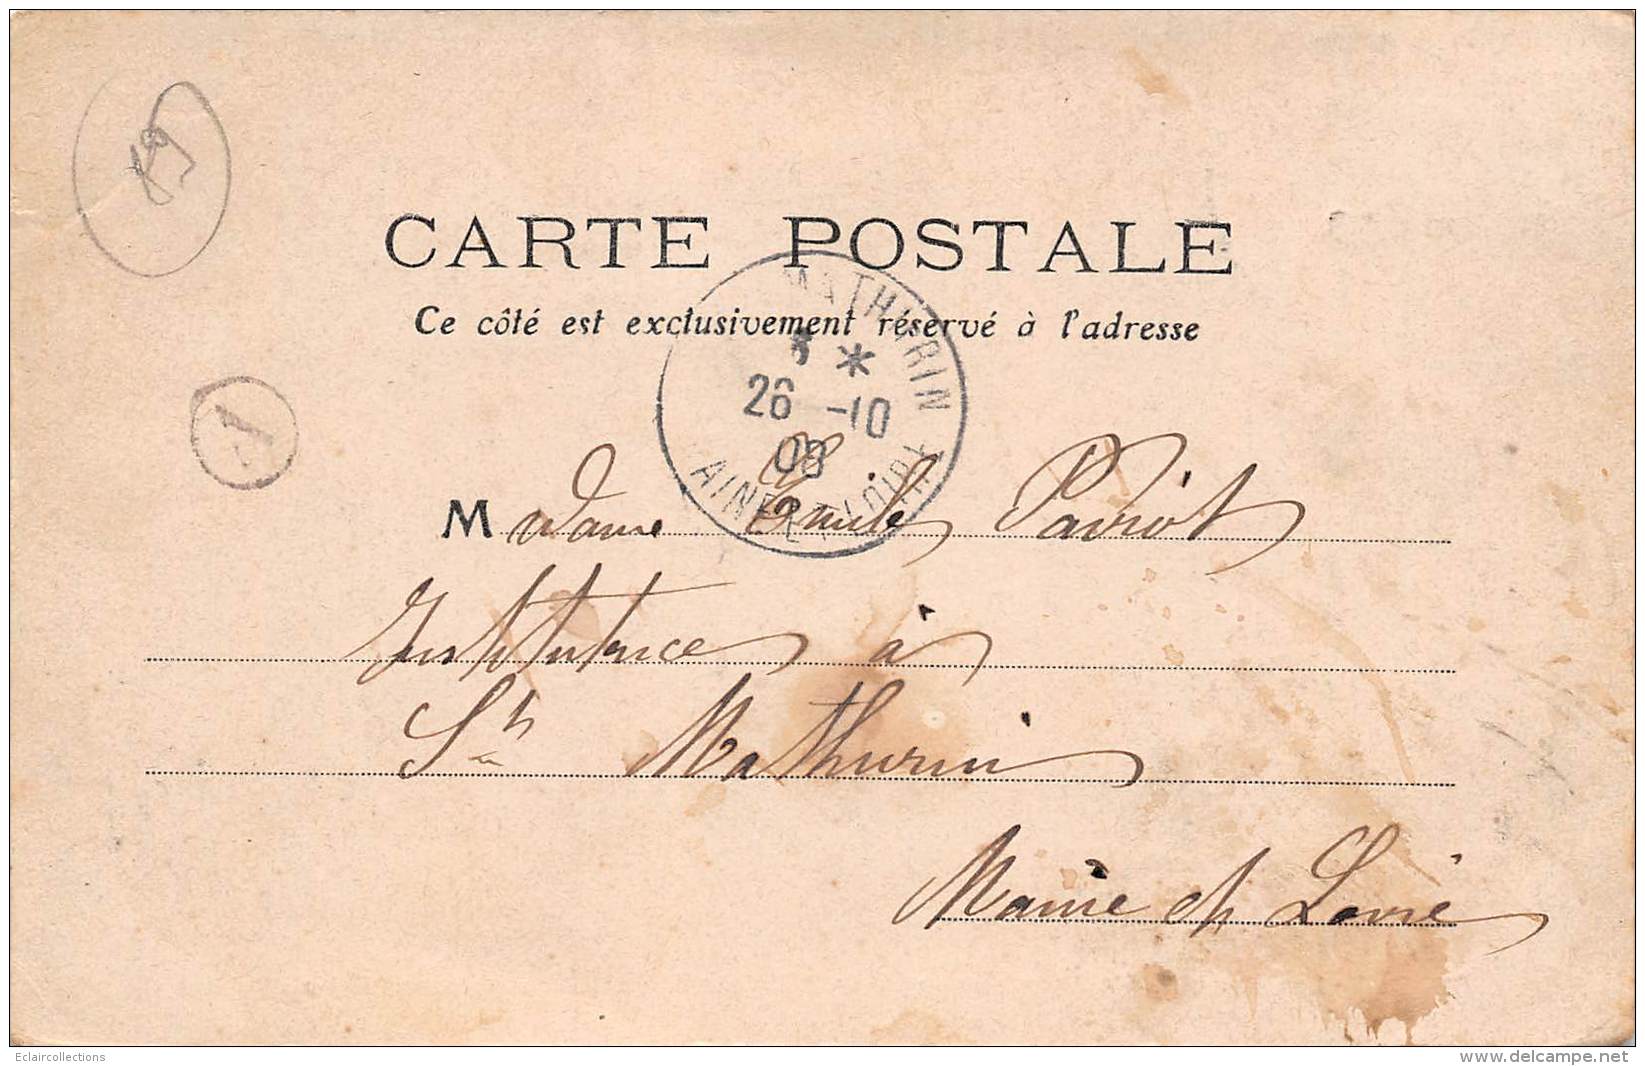 19
CARTE POSTALE
Ce côté est exclusivement réservé à l'adresse
MATHURIN
*
26 -10
MAINE ET LOIRE
A
Madame Emile Pariot
Institutrice à
St Mathurin
Maine et Loire
Eclaircollections
www.delcampe.net